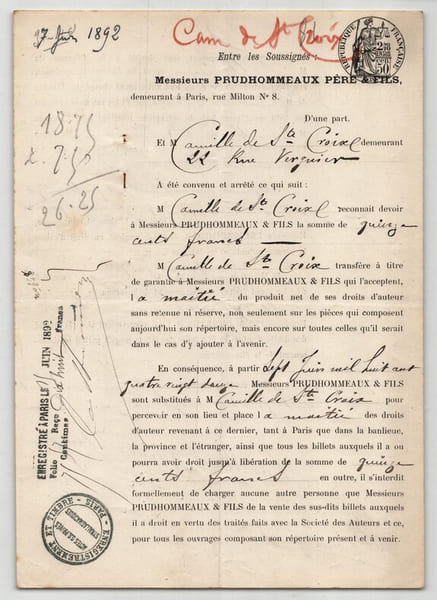 7 Juin 1892
Cam de Ste Croix
RÉPUBLIQUE FRANÇAISE
50
Entre les Soussignés :
Messieurs PRUDHOMMEAUX PÈRE & FILS,
demeurant à Paris, rue Milton N° 8.
D'une part.
Et M Camille de Ste Croix demeurant
22 Rue Vergnier
A été convenu et arrêté ce qui suit :
M Camille de Ste Croix reconnait devoir
à Messieurs PRUDHOMMEAUX & FILS la somme de quinze
cents francs
M Camille de Ste Croix transfère à titre
de garantie à Messieurs PRUDHOMMEAUX & FILS qui l'acceptent,
la moitié du produit net de ses droits d'auteur
sans retenue ni réserve, non seulement sur les pièces qui composent
aujourd'hui son répertoire, mais encore sur toutes celles qu'il serait
dans le cas d'y ajouter à l'avenir.
En conséquence, à partir Sept Juin mil huit cent
quatre vingt douze Messieurs PRUDHOMMEAUX & FILS
sont substitués à M Camille de Ste Croix
pour percevoir en son lieu et place la moitié des droits
d'auteur revenant à ce dernier, tant à Paris que dans la banlieue,
la province et l'étranger, ainsi que tous les billets auxquels il a ou
pourra avoir droit jusqu'à libération de la somme de quinze
cents francs en outre, il s'interdit
formellement de charger aucune autre personne que Messieurs
PRUDHOMMEAUX & FILS de la vente des sus-dits billets auxquels
il a droit en vertu des traités faits avec la Societé des Auteurs et ce,
pour tous les ouvrages composant son répertoire présent et à venir.
18.75
7.50
26.25
ENREGISTRÉ A PARIS LE JUIN 1892
Folio Reçu francs
Centimes
ENREGISTREMENT ET TIMBRE - PARIS